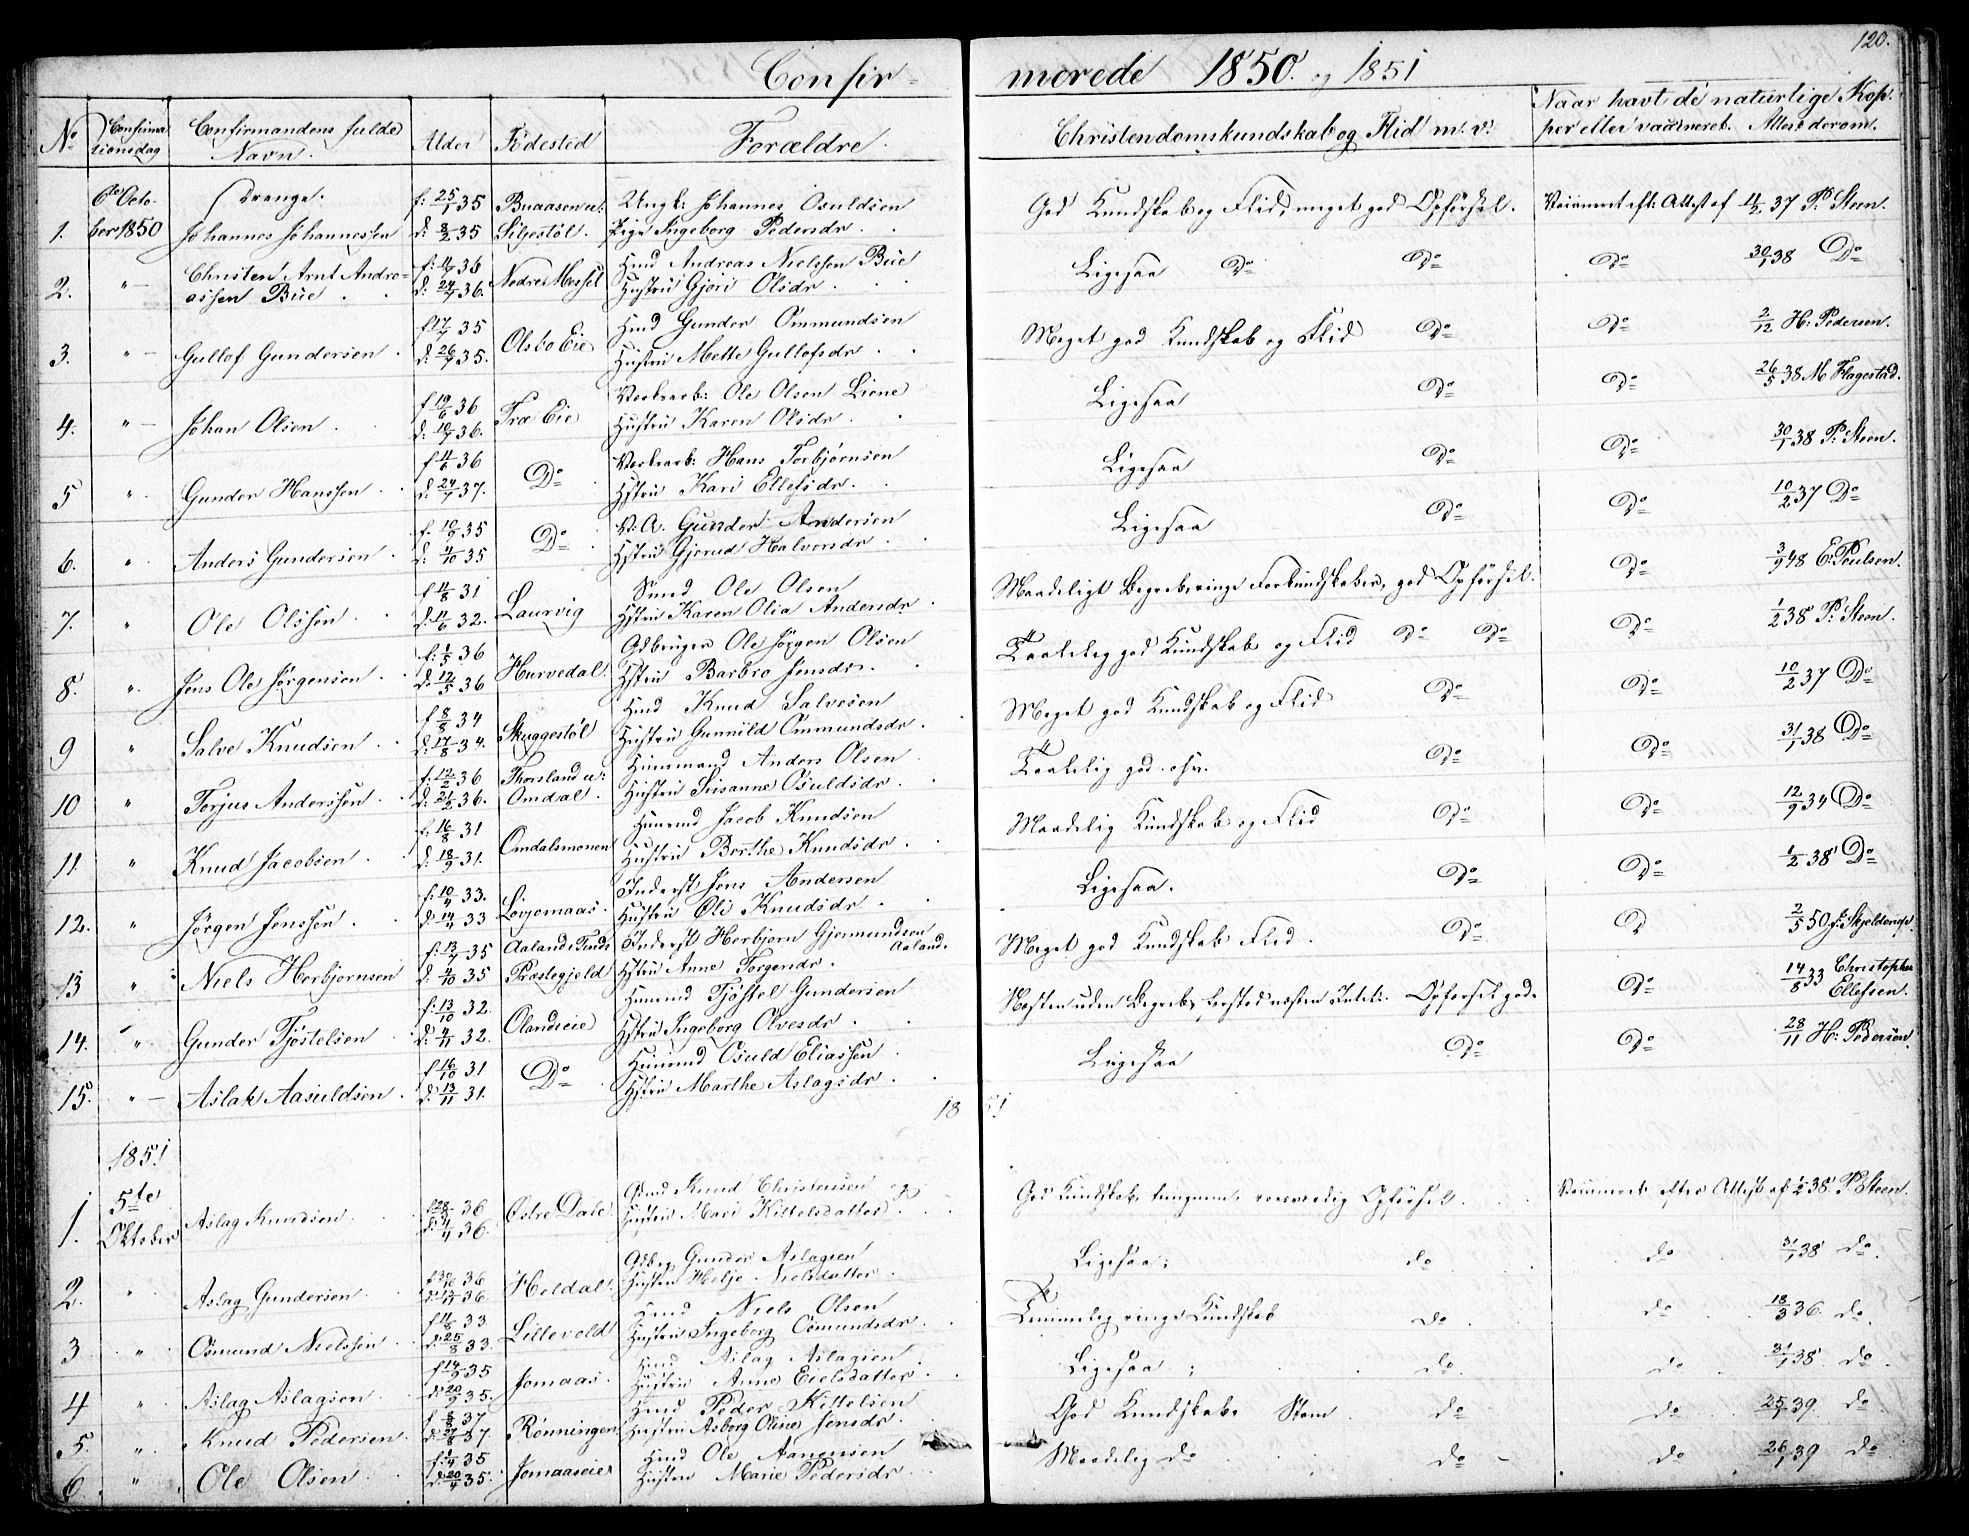 120.
Confirmerede 1850. og 1851
No Confirmationsdag Confirmandens fulde Navn. Alder Fødested Forældre. Christendomskundskab og Flid m: v: Naar havt de naturlige Kopper eller vaccineret. Attest derom.
6te October 1850 Drenge.
1. Johannes Johannesen f: 25/1 35 d: 8/2 35 Buaasen u: Siljestøl. Ungk: Johannes Osuldsen Pige Ingeborg Pedersdr. God Kundskab og Flid, meget god Opførsel. Vaccineret eft: Attest af 4/2 37 P: Steen.
2. " Christen Arnt Andreassen Bue f: 4/7 36 d: 24/7 36. Nedre Messel Hmd Andreas Nielssen Bue Hustru Gjøri Olsdr. Ligesaa Do Do Do 30/1 38 Do
3. " Gullof Gundersen f 17/7 35 d: 26/7 35. Olsbo Eie Hmd Gunder Ommundsen Hustru Mette Gullofsdr. Meget god Kundskab og Flid Do Do 2/12 H: Pedersen.
4. " Johan Olsen f 19/6 36 d: 10/7 36. Træ Eie Verkarb: Ole Olsen Liene Hustru Karen Olsdr. Ligesaa Do Do 26/5 38 M Flagestad.
5 " Gunder Hanssen f 4/6 36 d: 24/7 37. Do Verkarb: Hans Torbjørnsen Hstru Kari Ellefsdr. Ligesaa Do Do 30/1 38 P: Steen.
6. " Anders Gundersen f. 10/9 35 d: 4/10 35 Do V: A. Gunder Andersen Hstru Gjerud Halvorsdr. Ligesaa Do Do 10/2 37 Do
7. " Ole Olssen f 4/8 31 d: 11/6 32. Laurvig Smed Ole Olsen Hstru Karen Olia Andersdr. Maadeligt Begreb, ringe Forkundskaber, god Opførsel. Do 3/9 48 E: Poulsen.
8. " Jens Ole Jørgensen f: 1/5 36 d: 12/5 36 Hurvedal. Gdbruger Ole Jørgen Olsen Hstru Barbro Jensdr. Taalelig god Kundskab og Flid Do Do Do 1/2 38 P: Steen.
9 " Salve Knudsen f 8/8 34 d: 17/8 34. Skuggestøl Hmd Knud Salvesen Hustru Gunnild Ommundsdr. Meget god Kundskab og Flid Do Do 10/2 37 Do
10 " Torjus Anderssen f: 12/2 36 d: 21/2 36. Thorsland u: Omdal. Huusmand Anders Olsen Hustru Susanne Osuldsdr. Taalelig god Do Do 31/1 38 Do
11. " Knud Jacobsen f: 16/8 31 d: 18/9 31. Omdalsmonen Huusmd Jacob Knudsen Hustru Berthe Knudsdr. Maadelig Kundskab og Flid Do Do 12/9 34 Do
12. " Jørgen Jenssen f: 10/4 33. d: 14/4 33 Løvjomaas. Inderst Jens Andersen Hustru Oli Knudsdr. Ligesaa. Do Do 1/2 38 Do
13 " Niels Herbjørnsen f: 13/7 35 d: 4/10 35 Aaland i Tveds Præstegjeld Inderst Herbjørn Gjermundsen Aaland. Hstru Anne Torgersdr. Meget god Kundskab Flid. Do D 2/5 50
14. " Gunder Tjøstelsen f: 13/10 32. d: 4/11 32. Olandseie Huusmd Tjøstel Gundersen Hstru Ingeborg Olvesdr. Næsten uden Begreb, forstod næsten Intet. Opførsel god. Do 14/8 33 Christopher Ellefsen.
15. " Aslak Aasuldsen f 16/10 31 d: 13/11 31. Do Huusmd Osuld Eliassen Hstru Marthe Aslagsdr. Ligesaa Do Do 28/11 H: Pedersen.
1851
1851
5te Oktober
1. Aslag Knudsen f 28/3 36 d: 4/4 36. Østre Dale Gdmd Knud Christensen og Hustru Mari Kittelsdatter God Kundskab, Opførsel Vaccineret efter Attest af 1/2 38. P Steen.
2. " Aslag Gundersen f 30/10 36 d: 13/11 36 Heldal. Gdbrg Gunder Aslagsen Hustru Helje Nielsdatter Ligesaa; do do 31/1 38 do.
3 " Osmund Nielssen f 11/8 33 d: 25/8 33. Lillevold Hmd Niels Olsen Hustru Ingeborg Osmundsdr. Temmelig ringe Kundskab do do 18/3 36. do.
4 " Aslag Aslagsen f 14/9 35 d: 20/9 35. Jomaas. Hmd Aslag Aslagsen Hustru Anne Eielsdatter. Ligesaa; do do 31/1 38. do.
5. " Knud Pedersen f 8/8 37 d: 27/8 37. Rønningen Hmd Peder Kittelsen Hustru Asborg Oline Jensdr. God Kundskab. do do 25/1 39. do
6. " Ole Olsen f: 1/4 35 d: 20/4 35. Jomaaseie Hmd Ole Aanonsen Hustru Marie Pedersdr. Maadelig do do do 26/1 39 do